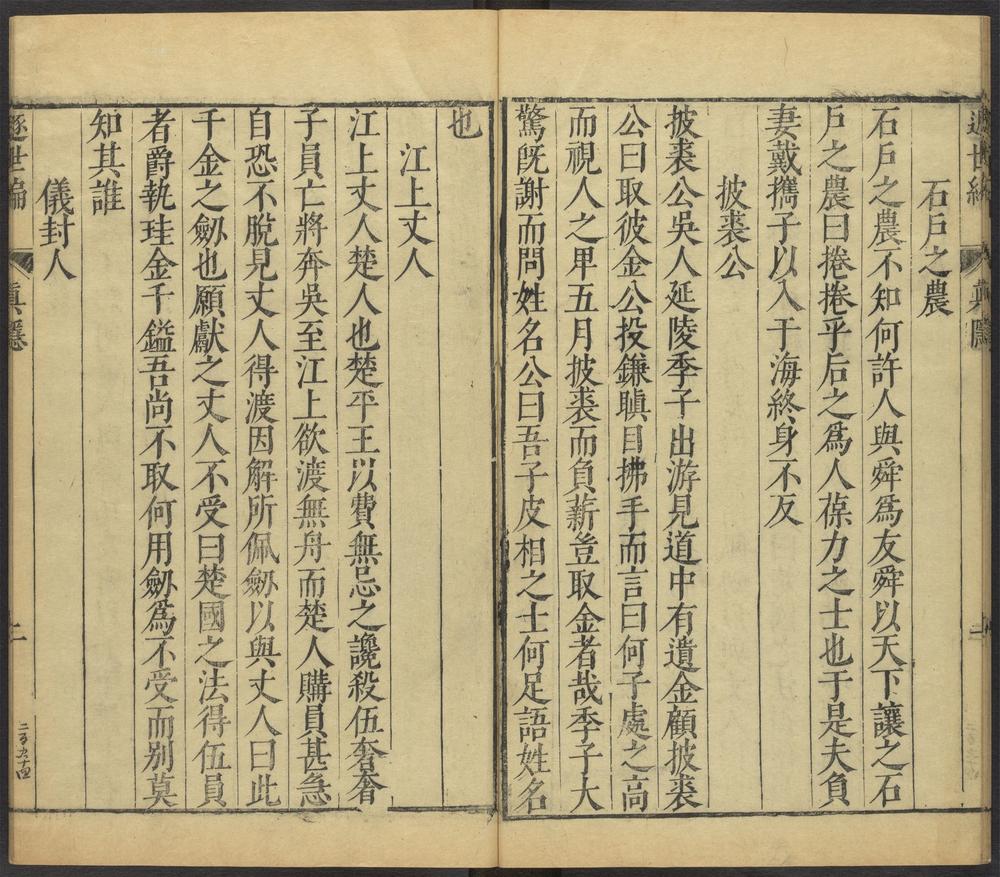 石戶之農
石戶之農不知何許人與舜爲友舜以天下讓之石
戶之農曰捲捲乎后之爲人葆力之士也于是夫負
妻戴攜子以入于海終身不反
披裘公
披裘公吳人延陵季子出游見道中有遺金顧披裘
公曰取彼金公投鎌瞋目拂手而言曰何子處之高
而視人之卑五月披裘而負薪豈取金者哉季子大
驚旣謝而問姓名公曰吾子皮相之士何足語姓名
也
江上丈人
江上丈人楚人也楚平王以費無忌之讒殺伍奢奢
子員亡將奔吳至江上欲渡無舟而楚人購員甚急
自恐不脫見丈人得渡因解所佩劒以與丈人曰此
千金之劒也願獻之丈人不受曰楚國之法得伍員
者爵執珪金千鎰吾尚不取何用劒爲不受而别莫
知其誰
儀封人
逐世編 眞隱 二